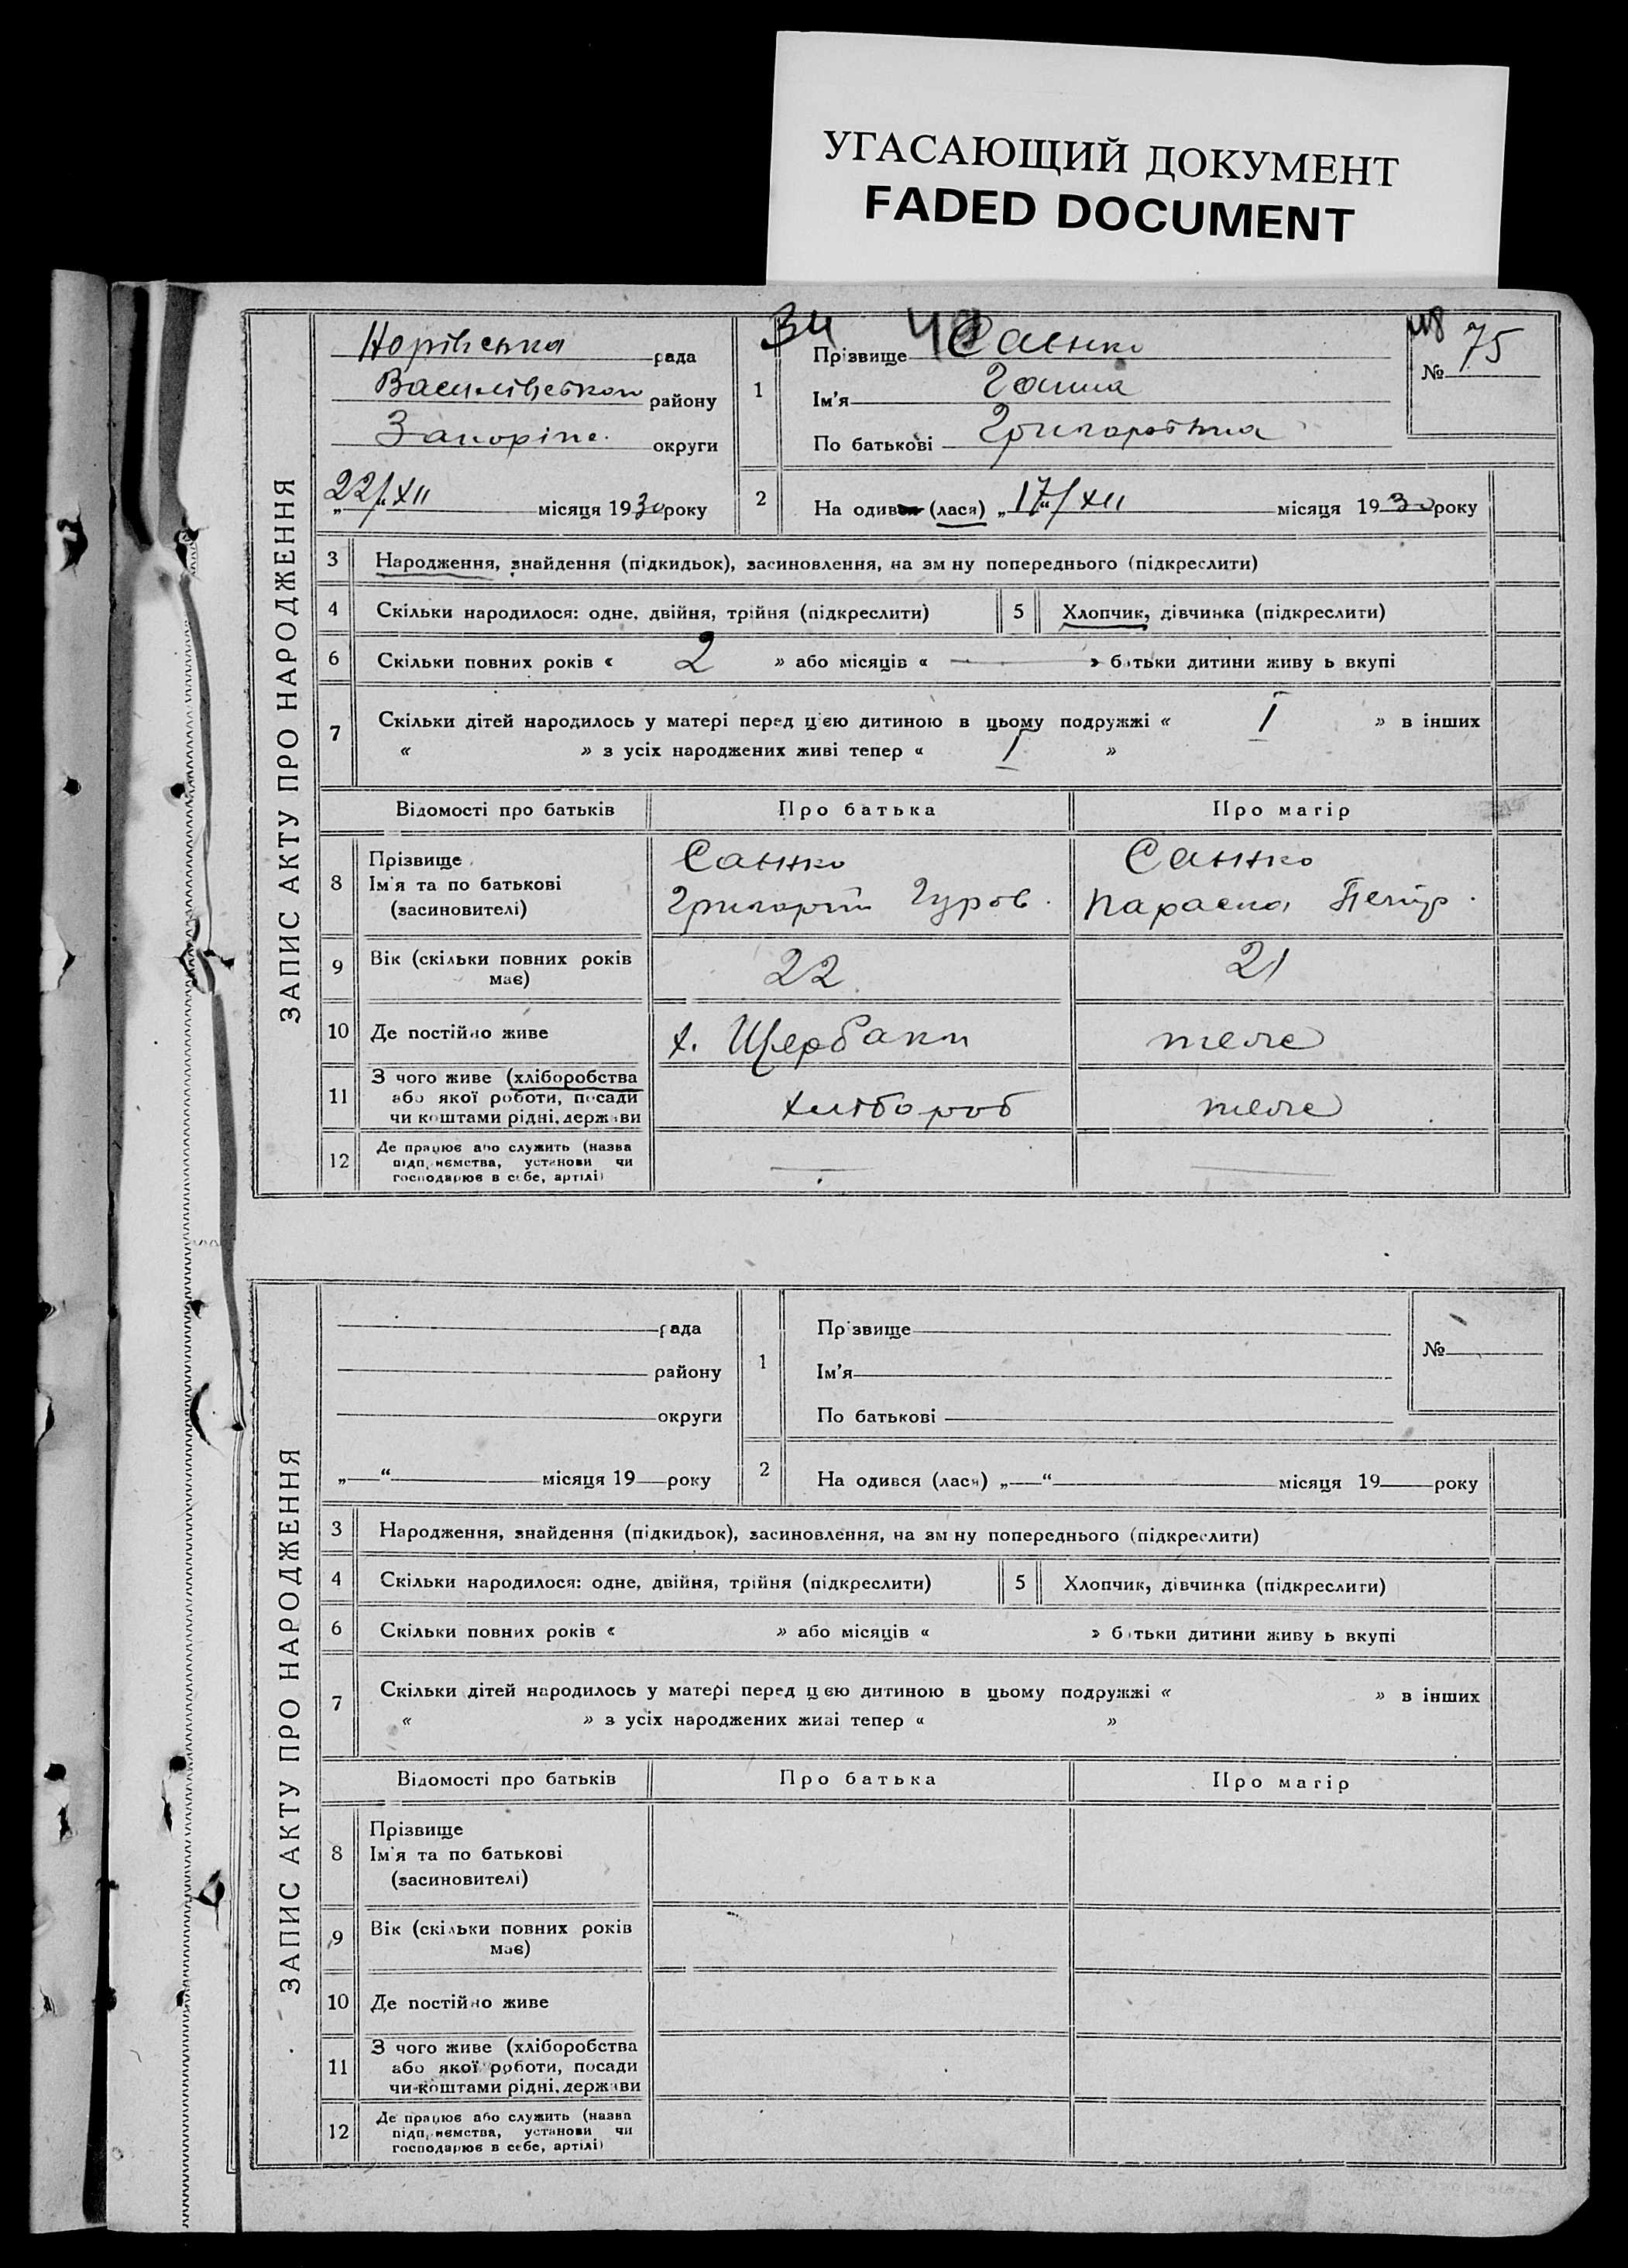 УГАСАЮЩИЙ ДОКУМЕНТ
FADED DOCUMENT
ЗАПИС АКТУ ПРО НАРОДЖЕННЯ
рада
району
Запоріж. округи
„22/“ XII місяця 1930 року
34
1 Прізвище Саенко
Ім'я Ганна
По батькові Григоровна
48
№ 75
2 На одився (лася) „17/“ XII місяця 1930 року
3 Народження, знайдення (підкидьок), засиновлення, на зм ну попереднього (підкреслити)
4 Скільки народилося: одне, двійня, трійня (підкреслити) 5 Хлопчик, дівчинка (підкреслити)
6 Скільки повних років « 2 » або місяців « — » батьки дитини живу ь вкупі
7 Скільки дітей народилось у матері перед цією дитиною в цьому подружжі « 1 » в інших
« » з усіх народжених живі тепер « 1 »
Відомості про батьків Про батька Про матір
8 Прізвище Саенко Саенко
Ім'я та по батькові Григорій Гуров. Параска Петр.
(засиновителі)
9 Вік (скільки повних років має) 22 21
10 Де постійно живе х. Щербаки теж
11 З чого живе (хліборобства
або якої роботи, посади
чи коштами рідні, держави
хлібороб теж
12 Де працює або служить (назва
підприємства, установи чи
господарює в себе, артілі)
ЗАПИС АКТУ ПРО НАРОДЖЕННЯ
рада
району
округи
„ “ місяця 19 року
1 Прізвище
Ім'я
По батькові
№
2 На одився (лася) „ “ місяця 19 року
3 Народження, знайдення (підкидьок), засиновлення, на зм ну попереднього (підкреслити)
4 Скільки народилося: одне, двійня, трійня (підкреслити) 5 Хлопчик, дівчинка (підкреслити)
6 Скільки повних років « » або місяців « » батьки дитини живу ь вкупі
7 Скільки дітей народилось у матері перед цією дитиною в цьому подружжі « » в інших
« » з усіх народжених живі тепер « »
Відомості про батьків Про батька Про матір
8 Прізвище
Ім'я та по батькові
(засиновителі)
9 Вік (скільки повних років
має)
10 Де постійно живе
11 З чого живе (хліборобства
або якої роботи, посади
чи коштами рідні, держави
12 Де працює або служить (назва
підприємства, установи чи
господарює в себе, артілі)